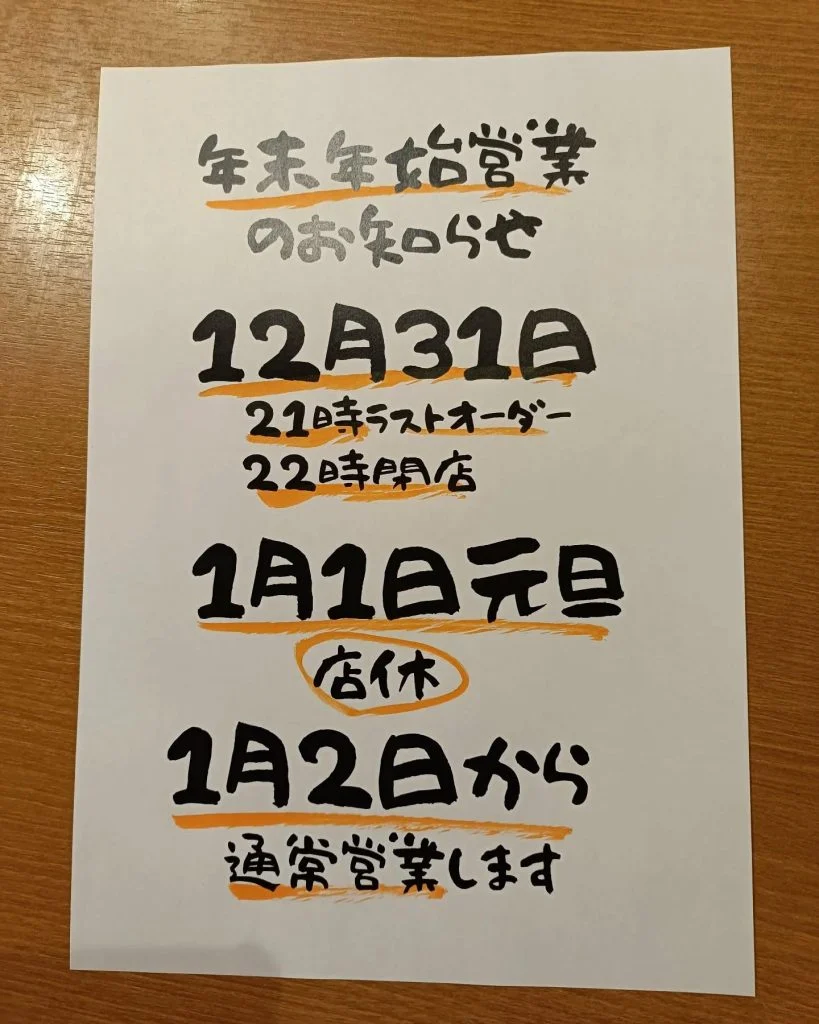 年末年始営業
のお知らせ
12月31日
21時ラストオーダー
22時閉店
1月1日元旦
店休
1月2日から
通常営業します